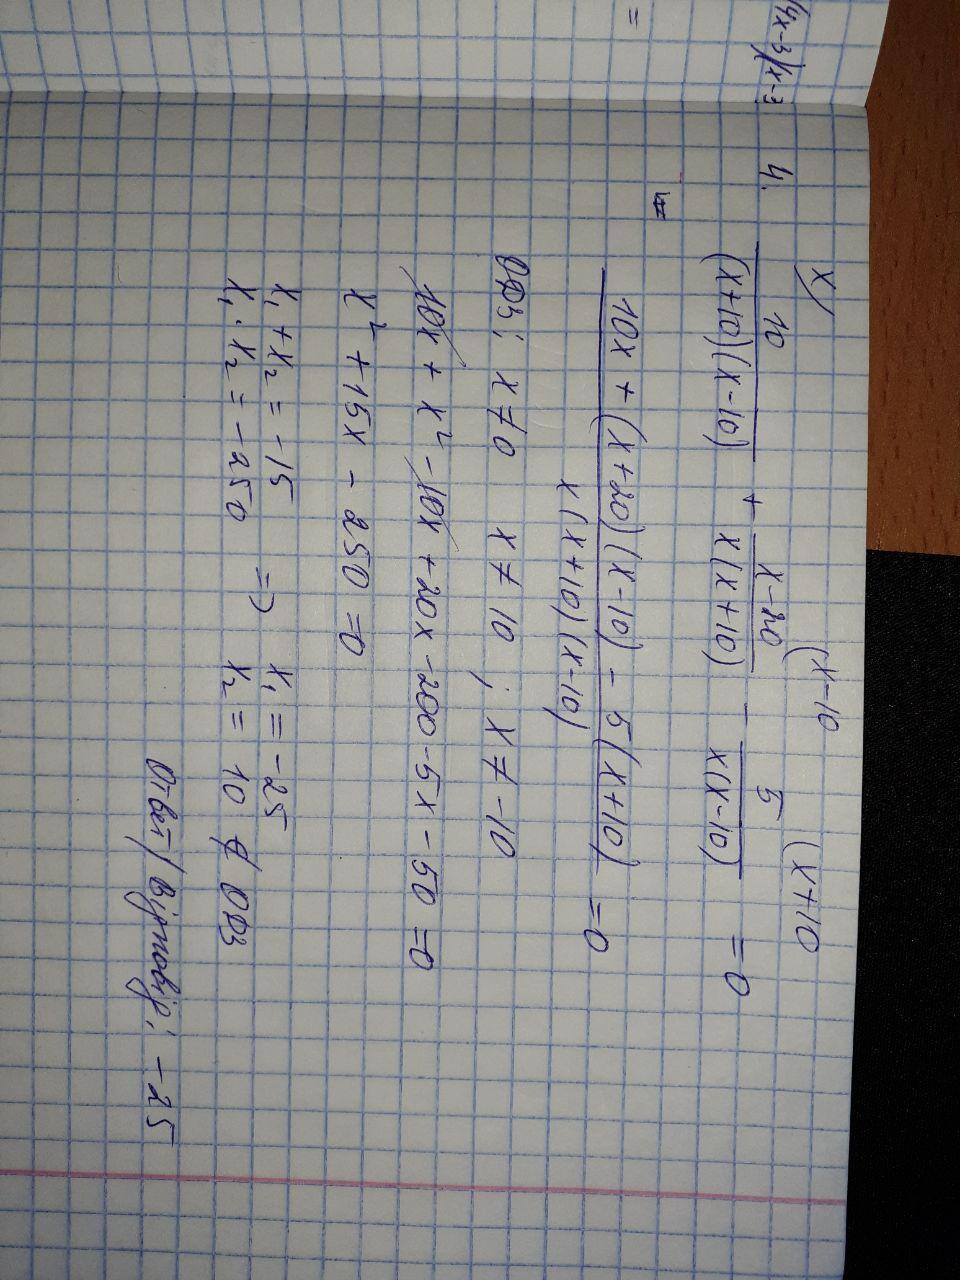 (4x-3)(x-3
=
4.
x/ (x-10 (x+10
10/((x+10)(x-10)) + (x-20)/(x(x+10)) - 5/(x(x-10)) = 0
(10x + (x+20)(x-10) - 5(x+10))/(x(x+10)(x-10)) = 0
ОДЗ: x ≠ 0 x ≠ 10 ; x ≠ -10
10x + x² - 10x + 20x - 200 - 5x - 50 = 0
x² + 15x - 250 = 0
x₁ + x₂ = -15 x₁ = -25
x₁ · x₂ = -250 => x₂ = 10 ∉ ОДЗ
Ответ/Відповідь: -25